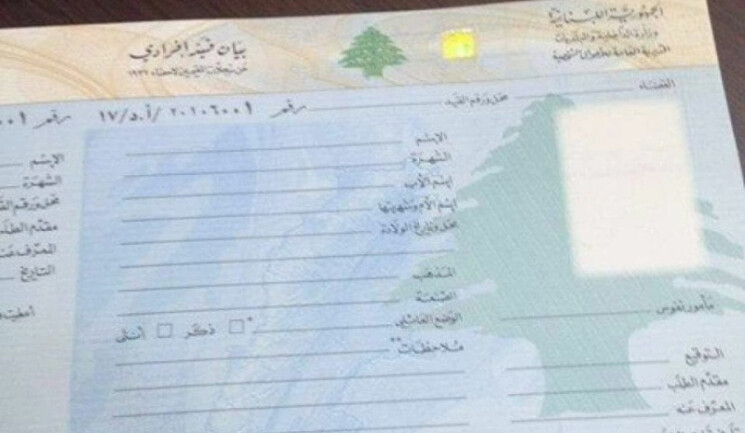 الجمهورية اللبنانية
وزارة الداخلية والبلديات
المديرية العامة للأحوال الشخصية
بيان قيد إفرادي
عن سجلات المقيمين لإحصاء ١٩٣٢
القضاء
محل ورقم القيد
رقم ٢٠١٠٦٠٠١ /أ.د/١٧
رقم ٠٠١
الإسم
الشهرة
إسم الأب
إسم الأم وشهرتها
محل وتاريخ الولادة
المذهب
الصنعة
الوضع العائلي
* ذكر أنثى
ملاحظات**
مأمور نفوس
التوقيع
مقدّم الطلب
المعرّف عنه
الإسم
الشهرة
محل ورقم القيد
مقدّم الطلب
المعرّف عنه
التاريخ